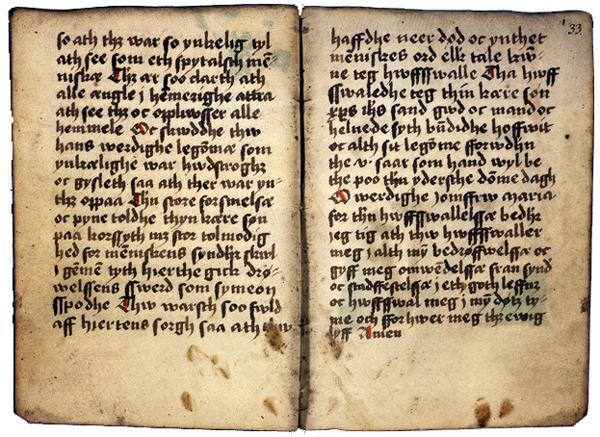 so ath thz war so ynkelig tyl
ath see som eth spytalsch mē-
niskæ Thz ær soo clarth ath
alle ængle j hemerighe attra
ath see thz oc oppliwsser alle
hemmele Oc skwddhe thw
hans werdighe legōmæ som
ynkælighe war hwdstroghz
oc gysleth saa ath ther war yn-
thz oppaa Thn store forsmelsæ
oc pyne toldhe thyn kære son
paa korssyth mz stor tolmodig
hed for mēniskens syndhr skyl
j gēmē tyth hierthe gick drø-
welssens sswerd som symeon
sspodhe Thw warsth soo fwld
aff hiertens sorgh saa ath thw
33
haffdhe neer død oc ynthet
mēniskes ord elle tale kwn-
ne teg hwffsswalle Tha hwff
sswaledhe teg thin kære son
xps ihs sand gwd oc mand oc
helnede syth hoffwit
oc alth sit legōme fforwdhn
the v. saar som hand wyl be
the poo thn ydersthe dōme dagh
O werdighe jomffrw maria
for thn hwffsswallelssæ bedhr
jeg tig ath thw hwffsswaller
meg j alth my bedrøffwelssæ oc
gyff meg omwēdelssæ fran synd
oc stadffestelssæ j eth goth leffnz
oc hwffsswal meg j my døtz ty-
me och fforhwer meg thz ewig
lyff Amen